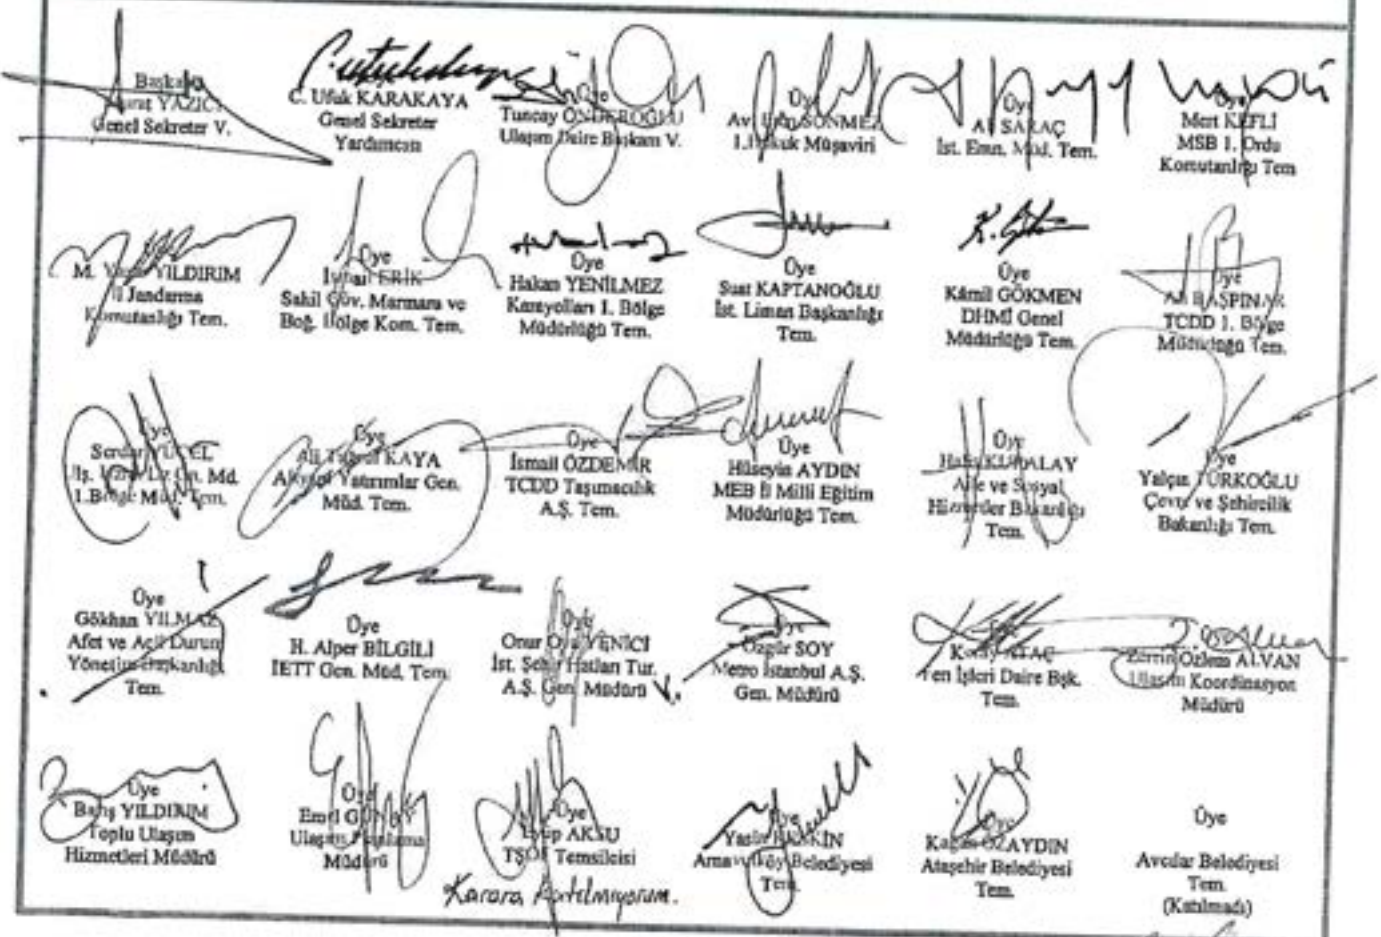 Başkan
Murat YAZICI
Genel Sekreter V.
C. Ufuk KARAKAYA
Genel Sekreter
Yardımcısı
Üye
Tuncay ÖNDEROĞLU
Ulaşım Daire Başkanı V.
Üye
Av. SÖNMEZ
1.Hukuk Müşaviri
Üye
SARAÇ
İst. Emn. Müd. Tem.
Üye
Mert KEFLİ
MSB 1. Ordu
Komutanlığı Tem
M. YILDIRIM
İl Jandarma
Komutanlığı Tem.
Üye
ERİK
Sahil Güv. Marmara ve
Boğ. Bölge Kom. Tem.
Üye
Hakan YENİLMEZ
Karayolları 1. Bölge
Müdürlüğü Tem.
Üye
Suat KAPTANOĞLU
İst. Liman Başkanlığı
Tem.
K.
Üye
Kâmil GÖKMEN
DHMİ Genel
Müdürlüğü Tem.
Üye
BAŞPINAR
TCDD 1. Bölge
Müdürlüğü Tem.
Üye
Serdar YÜCEL
Md.
1.Bölge Müd. Tem.
Üye
Ali KAYA
Altyapı Yatırımlar Gen.
Müd. Tem.
Üye
İsmail ÖZDEMİR
TCDD Taşımacılık
A.Ş. Tem.
Üye
Hüseyin AYDIN
MEB İl Milli Eğitim
Müdürlüğü Tem.
Üye
Aile ve Sosyal
Hizmetler Bakanlığı
Tem.
Üye
Yalçın TÜRKOĞLU
Çevre ve Şehircilik
Bakanlığı Tem.
Üye
Gökhan YILMAZ
Afet ve Acil Durum
Yönetim Başkanlığı
Tem.
Üye
H. Alper BİLGİLİ
İETT Gen. Müd. Tem.
Üye
Onur YENİCİ
İst. Şehir Hatları Tur.
A.Ş. Gen. Müdürü V.
Üye
Özgür SOY
Metro İstanbul A.Ş.
Gen. Müdürü
ATAÇ
Fen İşleri Daire Bşk.
Tem.
Zerrin Özlem ALVAN
Ulaşım Koordinasyon
Müdürü
Üye
Barış YILDIRIM
Toplu Ulaşım
Hizmetleri Müdürü
Üye
Emel GÜNAY
Ulaşım Planlama
Müdürü
Üye
Eyüp AKSU
TŞOF Temsilcisi
Karara katılmıyorum.
Üye
Yasin
Arnavutköy Belediyesi
Tem.
Üye
Kağan ÖZAYDIN
Ataşehir Belediyesi
Tem.
Üye
Avcılar Belediyesi
Tem.
(Katılmadı)